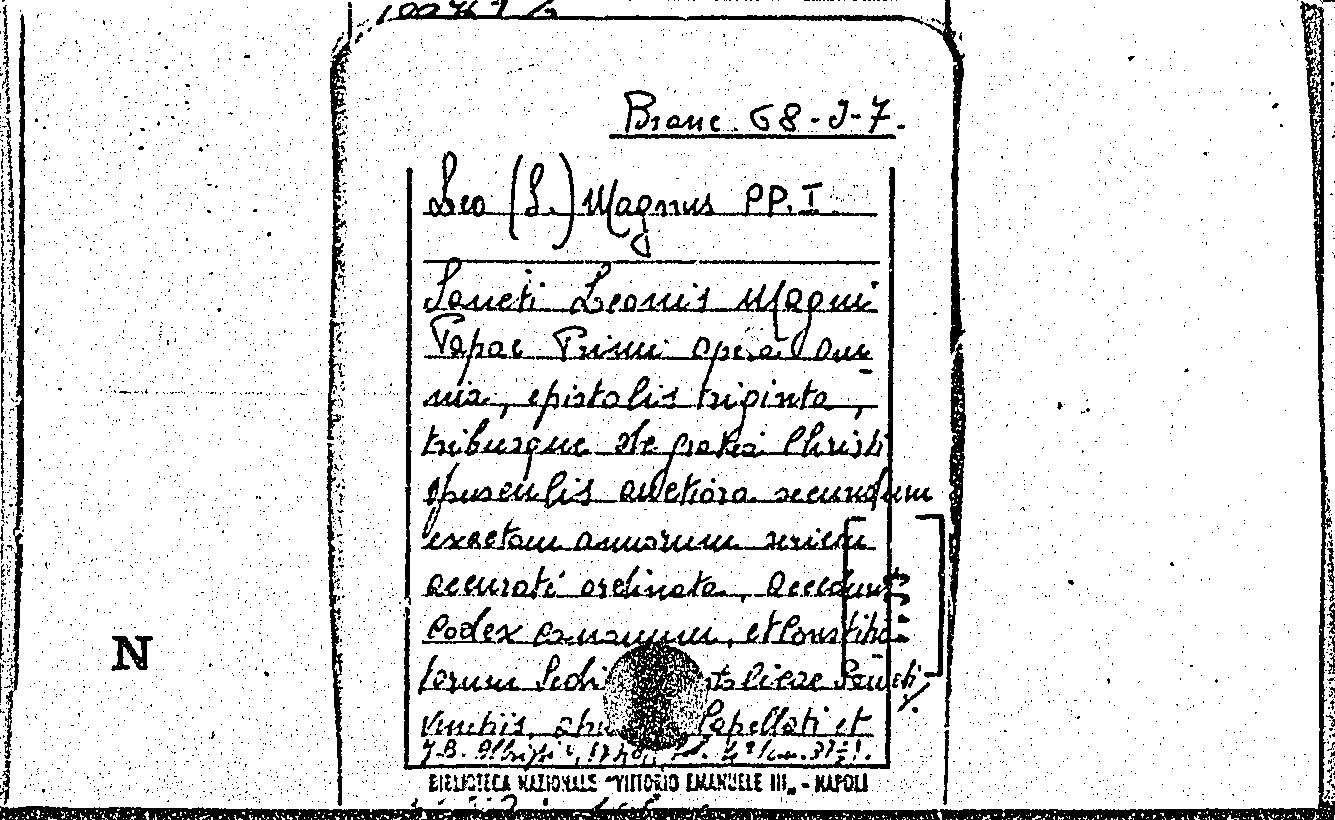 Branc. 68-J-7.
Leo (S.) Magnus PP. I.
Sancti Leonis Magni
Papae Primi opera om
nia, epistolis triginta,
tribusque de gratia Christi
opusculis auctiora secundum
exactam annorum seriem
accuraté ordinata, accedunt
codex canonum, et Constitu-
torum Sedi licae Sancti
Venetiis, Capellati et
BIBLIOTECA NAZIONALE "VITTORIO EMANUELE III" - NAPOLI
N